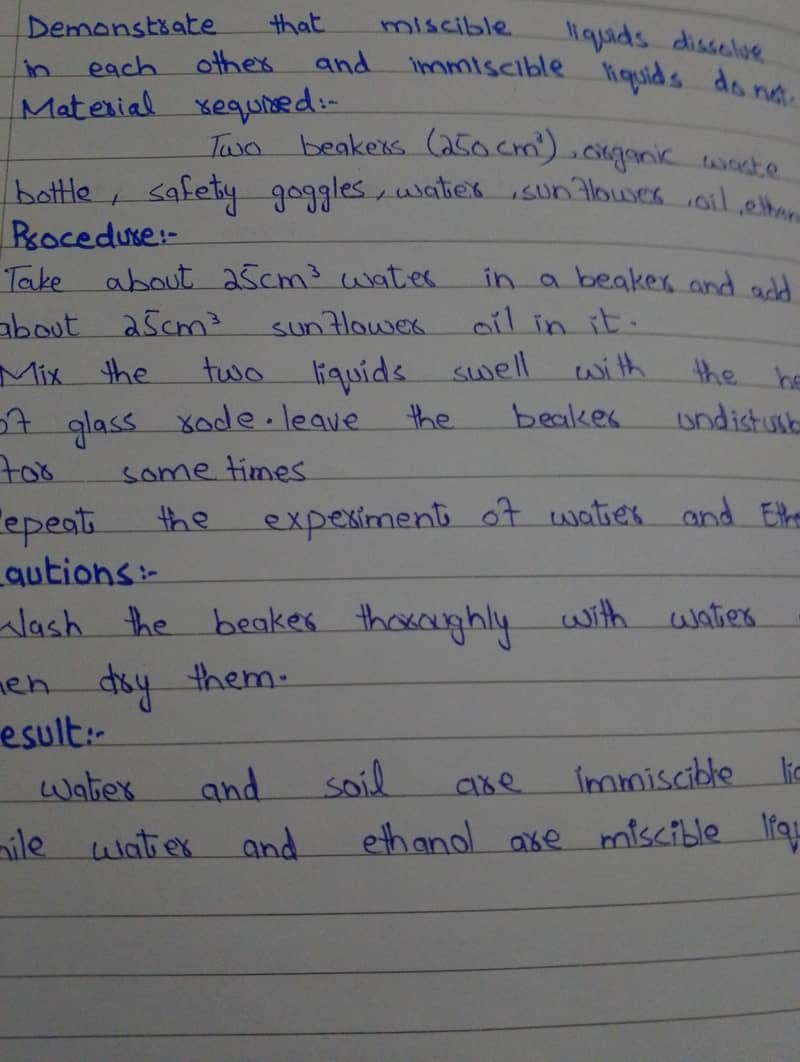 Demonstrate that miscible liquids dissolve
in each other and immiscible liquids do not.
Material required:-
Two beakers (250cm³), organic waste
bottle, safety goggles, water, sunflower, oil, ethan
Procedure:-
Take about 25cm³ water in a beaker and add
about 25cm³ sunflower oil in it.
Mix the two liquids swell with the he
of glass rode. leave the beaker undisturb
for some times
epeat the experiment of water and Eth
autions:-
Wash the beaker thoroughly with water
en dry them.
esult:-
water and soil are immiscible li
ile water and ethanol are miscible liq